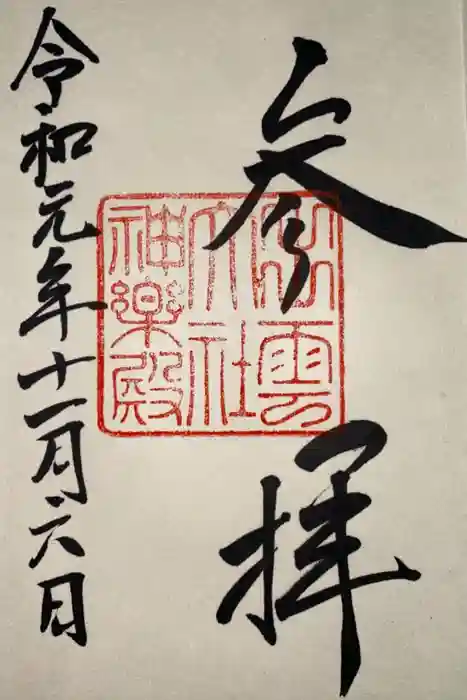 参拝
出雲
大社
神楽殿
令和元年十一月六日